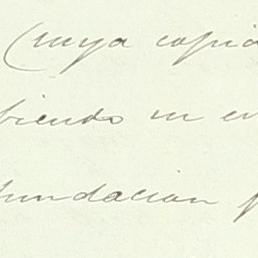 (cuya copia
biendo su en
fundacion p